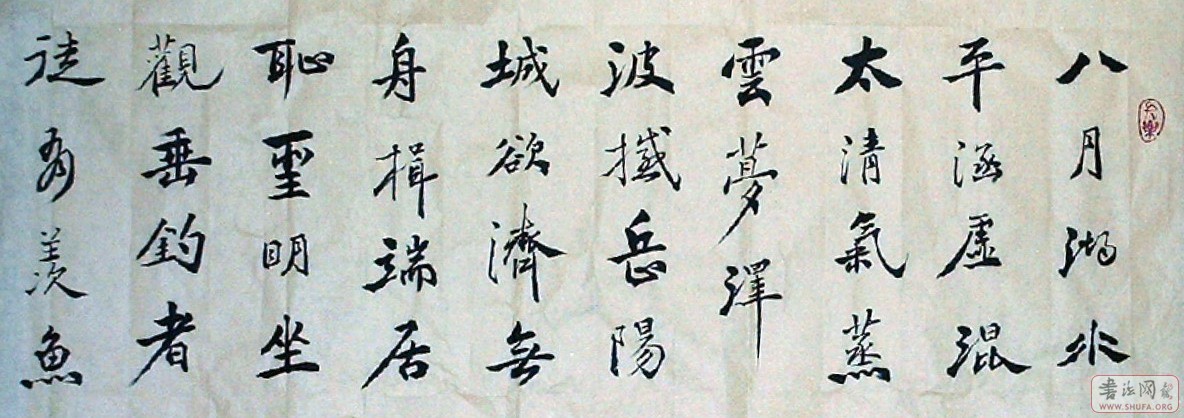 八月湖水
平涵虛混
太清氣蒸
雲夢澤
波撼岳陽
城欲濟無
舟楫端居
恥聖明坐
觀垂釣者
徒有羨魚
WWW.SHUFA.ORG